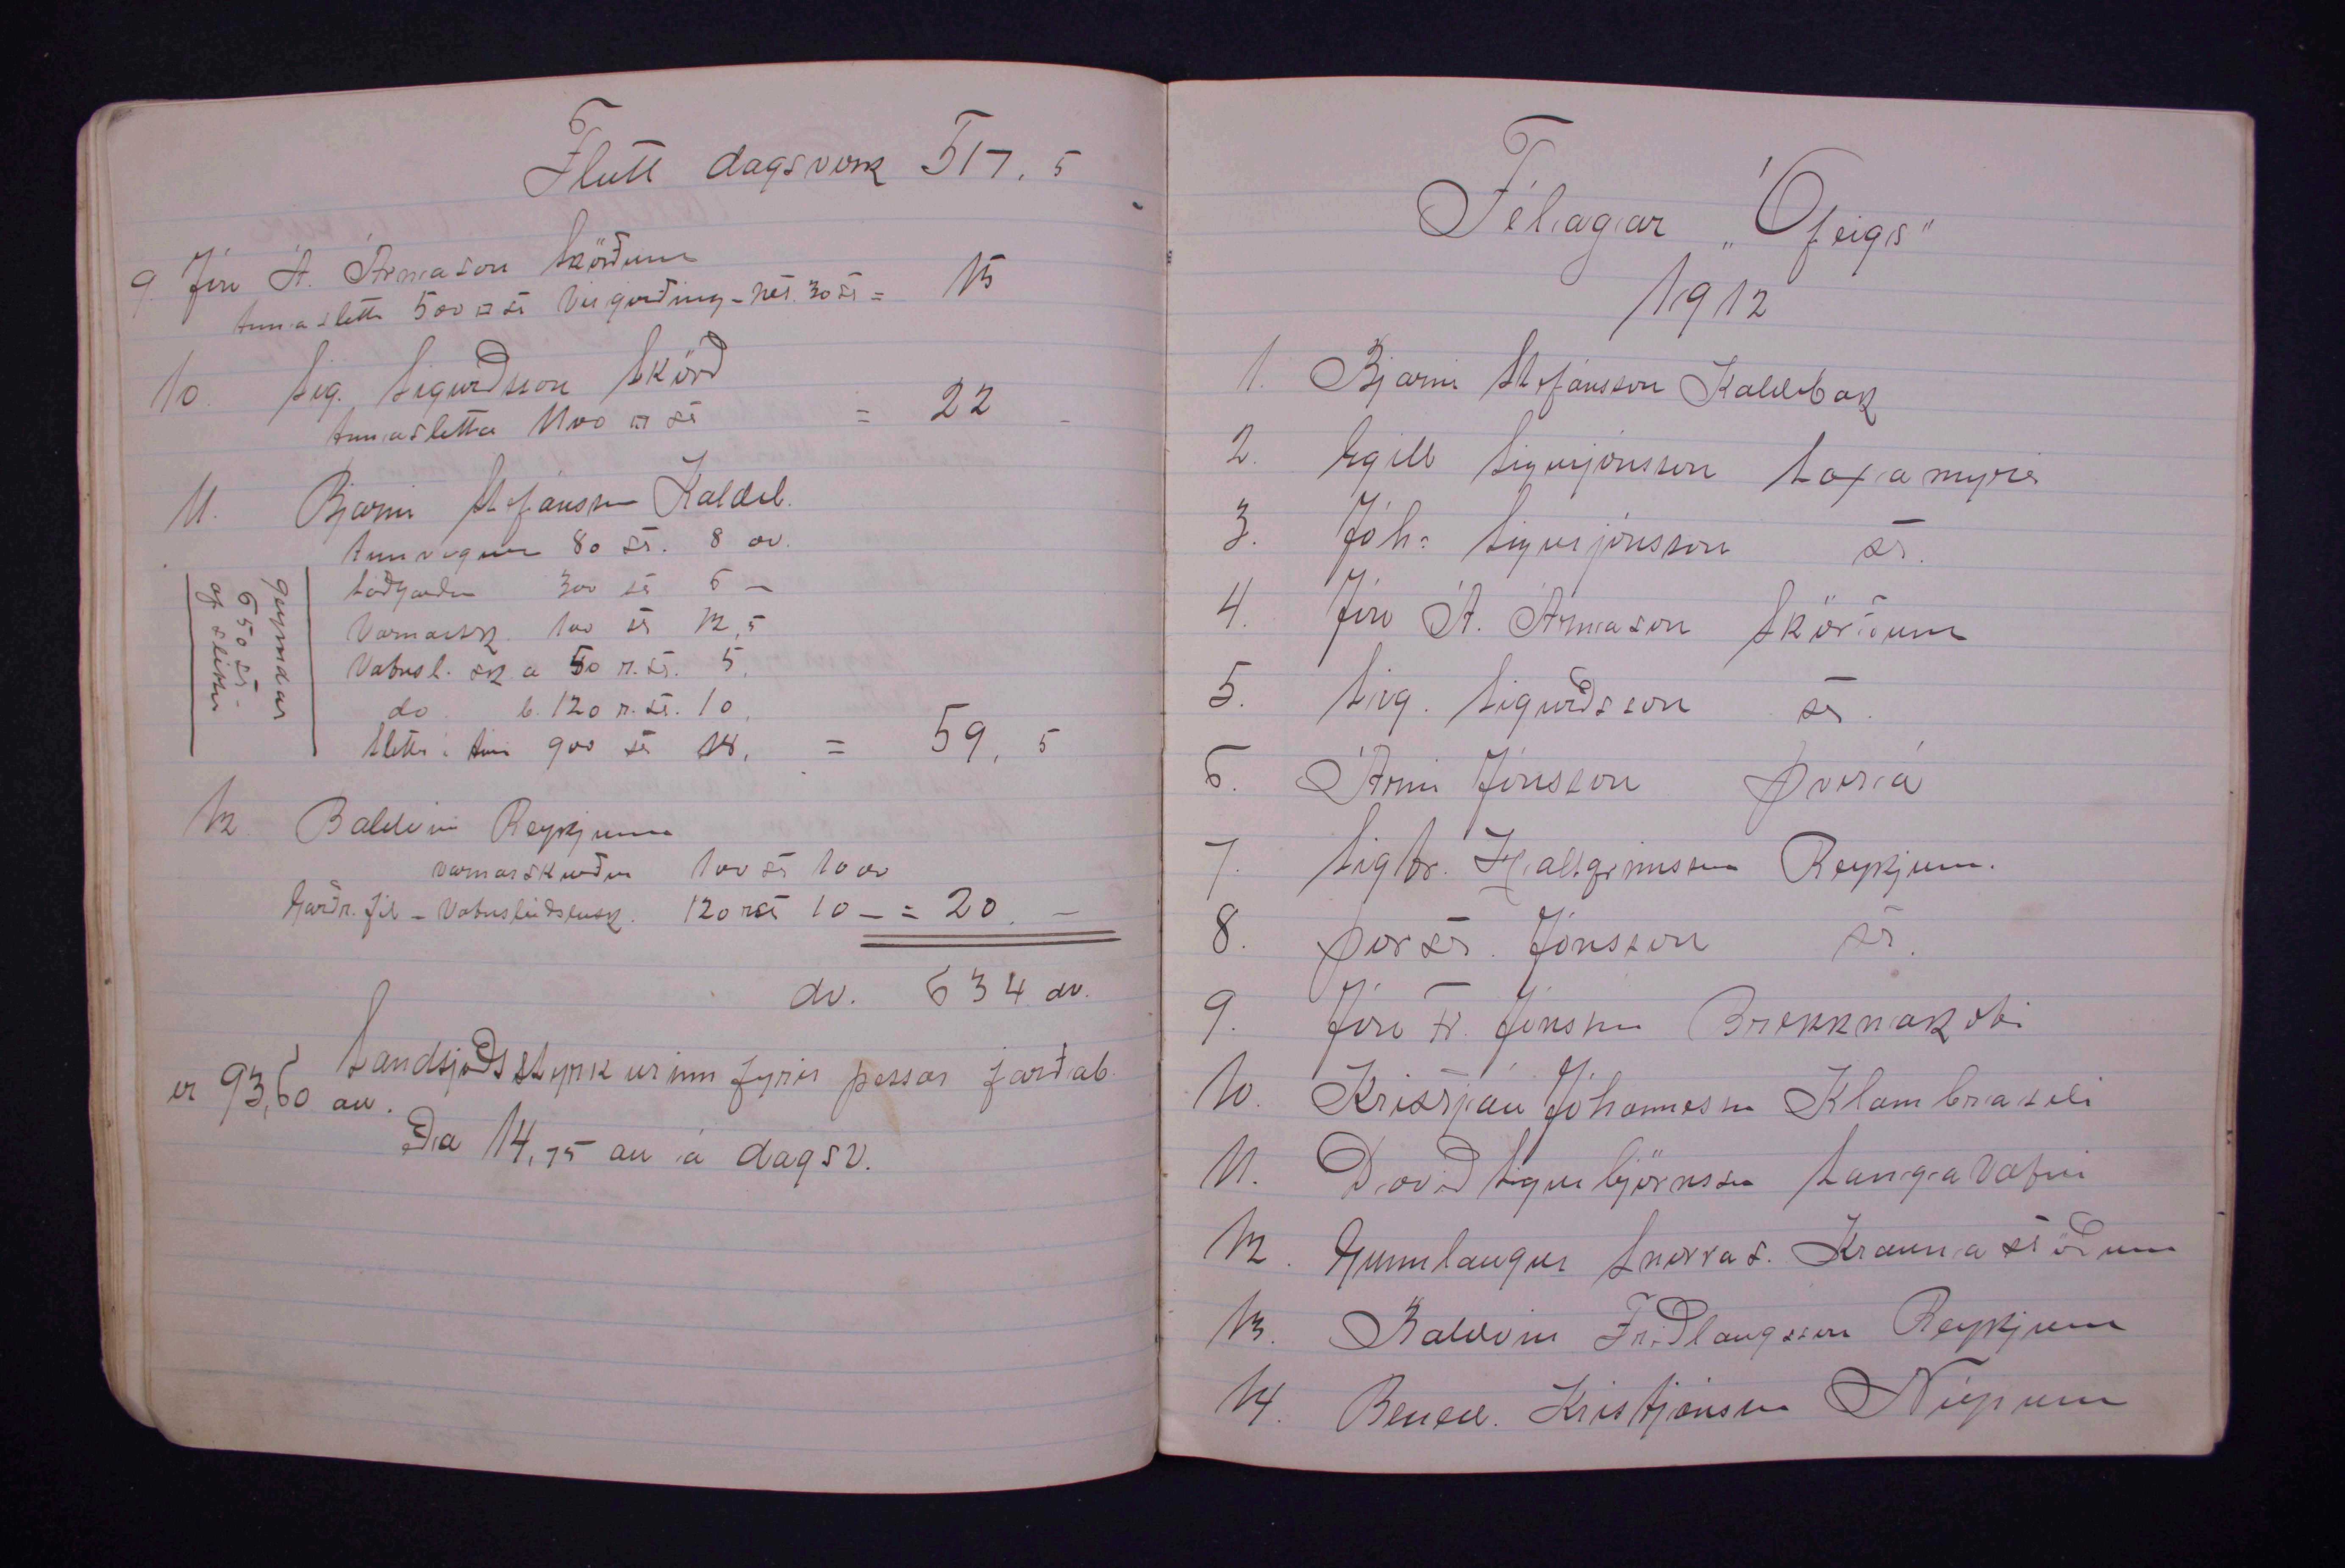 Flutt dagsverk 517,5
9. Jón Á. Árnason Skörðum
túnaslétta 500 □ st Vírgirðing - 30 st = 15
10. Sig. Sigurðsson Skörð
túnaslétta 1100 □ st = 22 -
11. Bjarni Stefánsson Kaldb.
túnvegur 80 st. 8 dv.
Laðgarður 300 st 6 -
Varnarsk. 100 st 12,5
Vatnsl. sk a 50 r.st. 5,
do b. 120 r.st. 10,
Slétta í tún 900 st 18, = 59,5
geymdar
650 st -
af sléttu
12. Baldvin Reykjum
varnarskurður 100 st 10 dv
Garðr. fél - Vatnsleiðslusk. 120 rst 10 - = 20. -
dv. 634 dv.
Landsjóðsstyrkurinn fyrir þessar jarðab.
er 93,60 au.
Eða 14,75 au á dagsv.
Félagar "Ófeigs"
1912
1. Bjarni Stefánsson Kaldbak
2. Egill Sigurjónsson Laxamýri
3. Jóh: Sigurjónsson st.
4. Jón Á. Árnason Skörðum
5. Sig. Sigurðsson st.
6. Árni Jónsson Þverá
7. Sigtr. Hallgrímsson Reykjum.
8. Þorst. Jónsson st.
9. Jón Fr. Jónsson Brekknakoti
10. Kristján Jóhannesn Klambraseli
11. Davíð Sigurbjörnsson Langavatni
12. Gunnlaugur Snorras. Kraunastöðum
13. Baldvin Friðlaugsson Reykjum
14. Bened. Kristjánsson Núpum